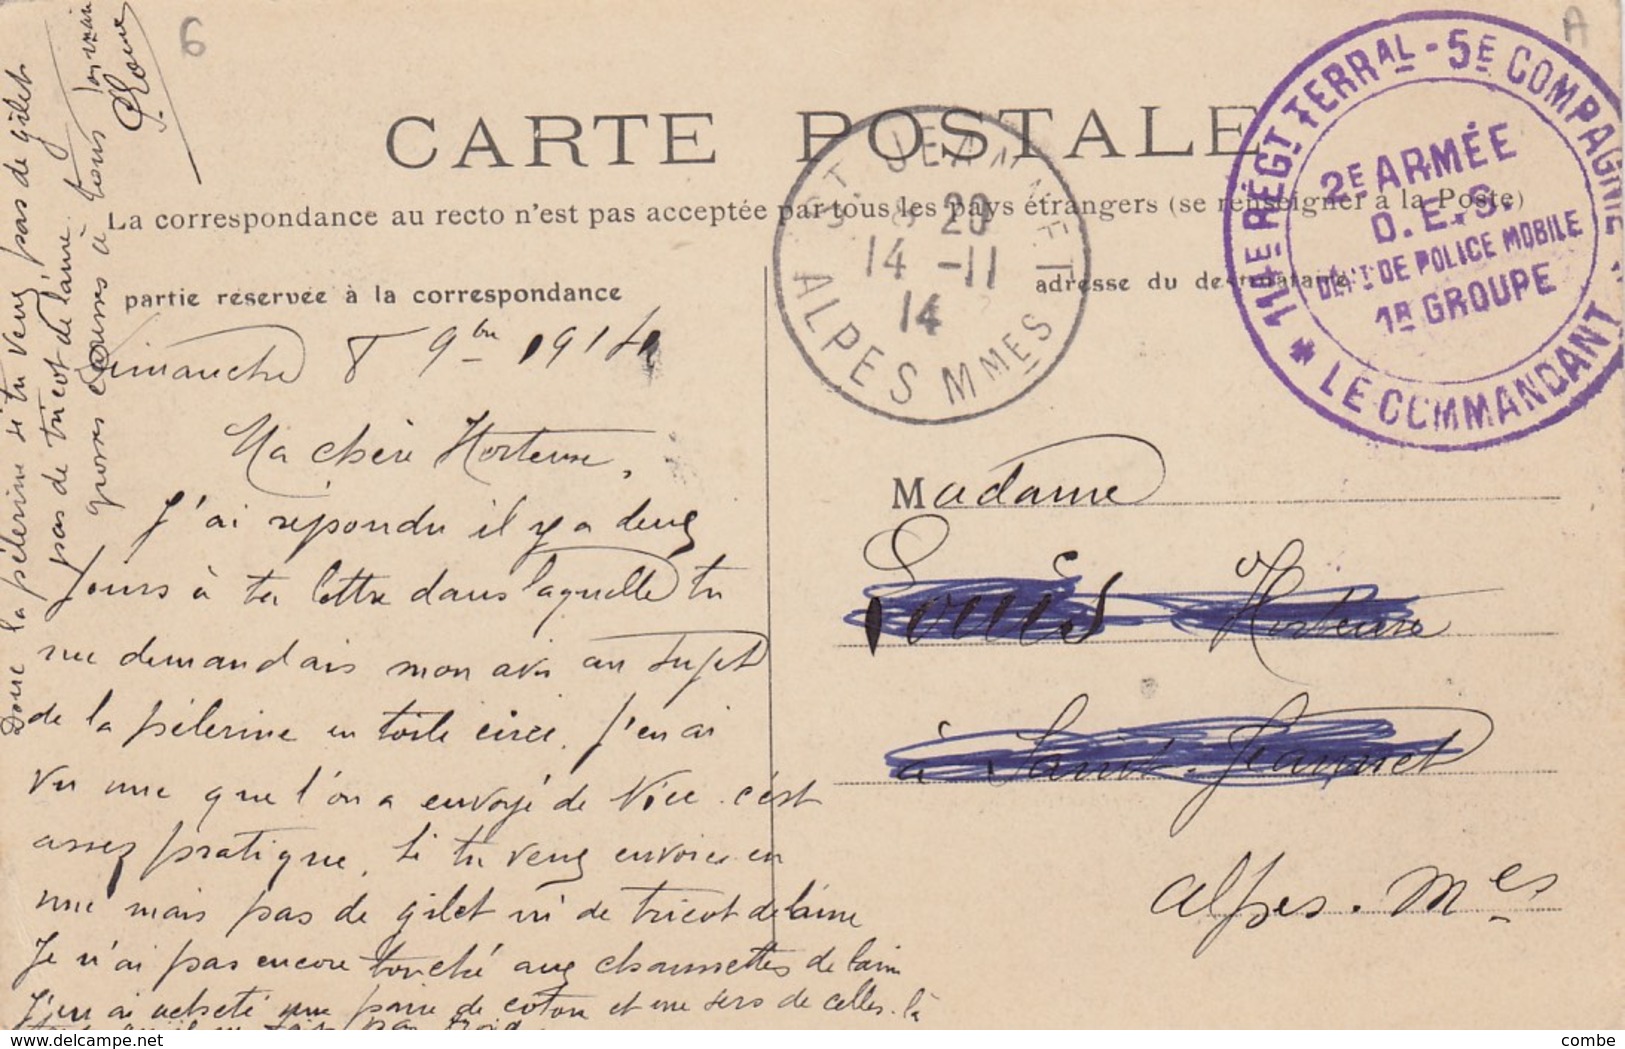 6
A
CARTE POSTALE
La correspondance au recto n'est pas acceptée par tous les pays étrangers (se renseigner à la Poste)
partie réservée à la correspondance
adresse du destinataire
ST. JEANNET
20
14 -11
14
ALPES MMES
114E RÉGT TERRAL - 5E COMPAGNIE
2E ARMÉE
D. E. S.
DÉT DE POLICE MOBILE
1R GROUPE
LE COMMANDANT
Dimanche 8 9bre 1914
Ma chère Hortense,
J'ai répondu il y a deux
jours à ta lettre dans laquelle tu
me demandais mon avis au sujet
de la pèlerine en toile cirée. J'en ai
vu une que l'on a envoyé de Nice. c'est
assez pratique. Si tu veux envoies-en
une mais pas de gilet ni de tricot de laine
Je n'ai pas encore touché aux chaussettes de laine
J'en ai acheté une paire de coton et me sers de celles-là
tant qu'il ne fait pas froid.
Donc la pèlerine si tu veux, pas de gilet
pas de tricot de laine.
grosses caresses à tous
Louis
Madame
Louis Hortense
à Saint-Jeannet
Alpes-Mes
www.delcampe.net
combe